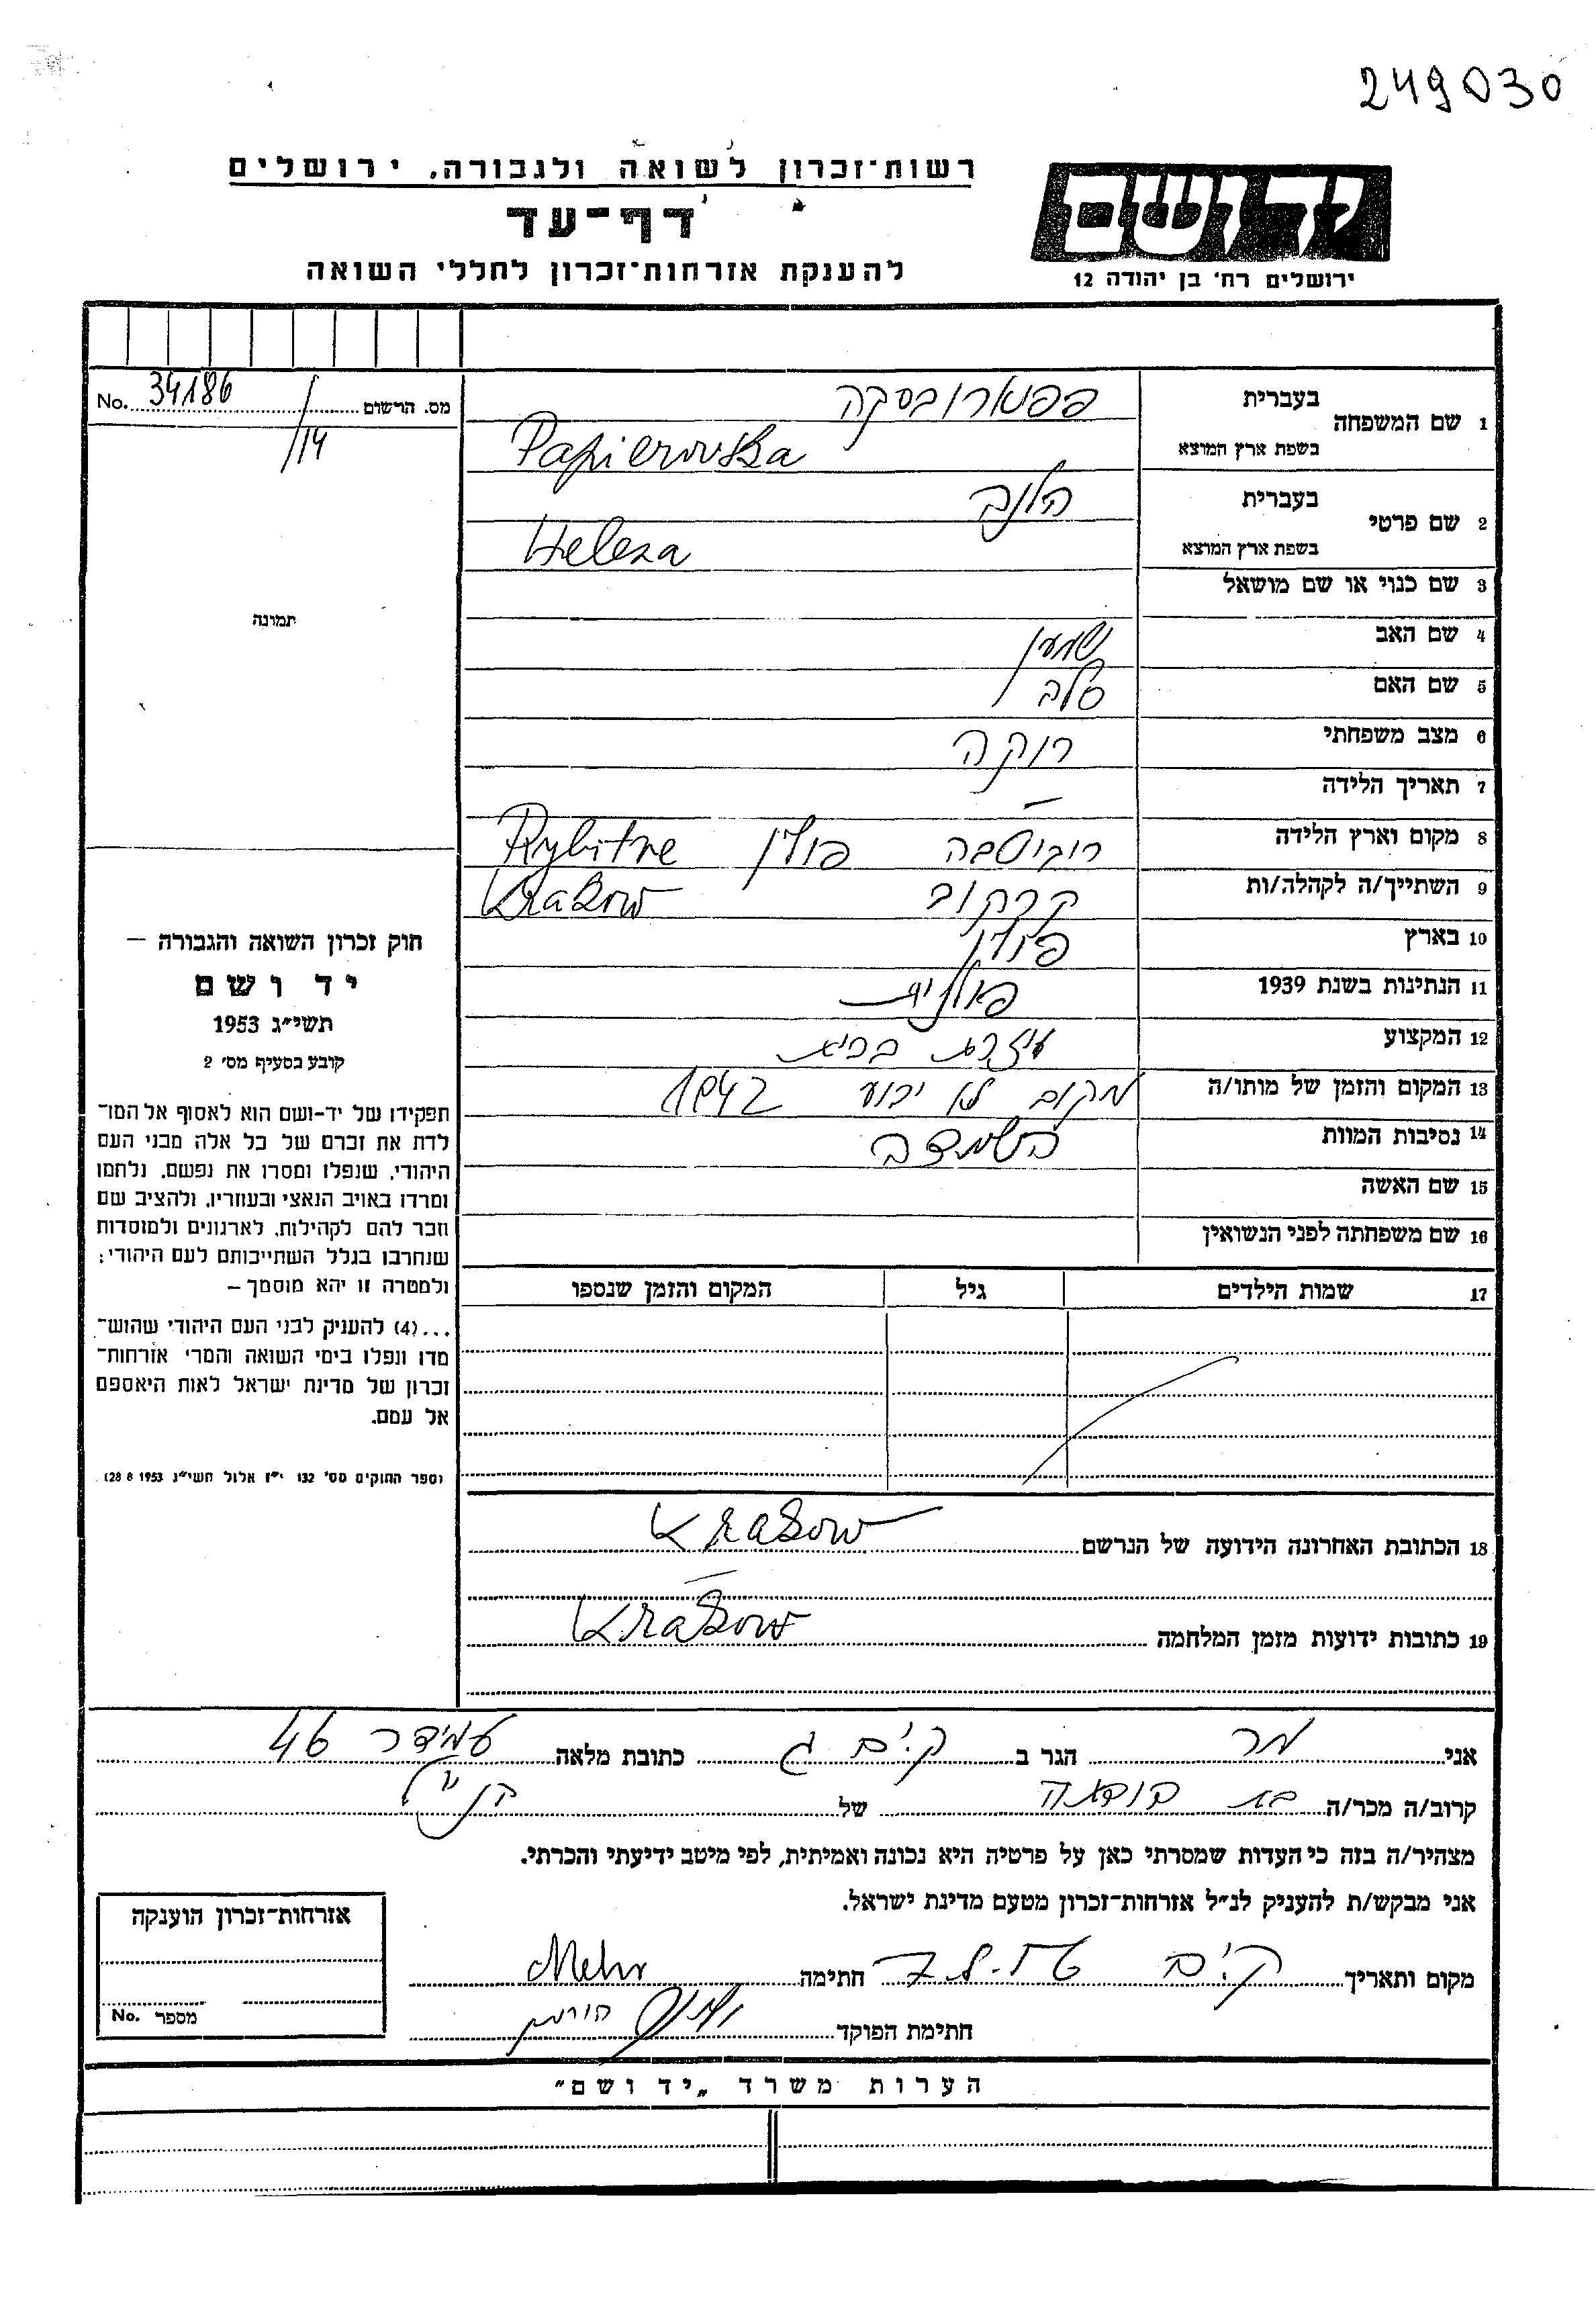 249030
רשות־זכרון לשואה ולגבורה, ירושלים
דף־עד
להענקת אזרחות־זכרון לחללי השואה
יד ושם
ירושלים רח' בן יהודה 12
No. 34186 מס. הרשום
/14
תמונה
חוק זכרון השואה והגבורה —
יד ושם
תשי״ג 1953
קובע בסעיף מס׳ 2
תפקידו של יד-ושם הוא לאסוף אל המו־
לדת את זכרם של כל אלה מבני העם
היהודי, שנפלו ומסרו את נפשם, נלחמו
ומרדו באויב הנאצי ובעוזריו, ולהציב שם
וזכר להם לקהילות, לארגונים ולמוסדות
שנחרבו בגלל השתייכותם לעם היהודי;
ולמטרה זו יהא מוסמך —
...(4) להעניק לבני העם היהודי שהוש־
מדו ונפלו בימי השואה והמרי אזרחות־
זכרון של מדינת ישראל לאות היאספם
אל עמם.
(ספר החוקים מס׳ 132 י״ז אלול תשי״ג 28.8.1953)
1 שם המשפחה בעברית
בשפת ארץ המוצא Papierowska
2 שם פרטי בעברית הלנה
בשפת ארץ המוצא Helena
3 שם כנוי או שם מושאל
4 שם האב שמעון
5 שם האם
6 מצב משפחתי רוקה
7 תאריך הלידה —
8 מקום וארץ הלידה פולין Rybitne
9 השתייך/ה לקהלה/ות קרקוב Krakow
10 בארץ פולין
11 הנתינות בשנת 1939 פולנית
12 המקצוע עוזרת בבית
13 המקום והזמן של מותו/ה מקום לא ידוע 1942
14 נסיבות המוות השמדה
15 שם האשה
16 שם משפחתה לפני הנשואין
17 שמות הילדים גיל המקום והזמן שנספו
18 הכתובת האחרונה הידועה של הנרשם Krakow
19 כתובות ידועות מזמן המלחמה Krakow
אני מר הגר ב ק.ים ג כתובת מלאה עמידר 46
קרוב/ה מכר/ה בת דודה של הנ״ל
מצהיר/ה בזה כי העדות שמסרתי כאן על פרטיה היא נכונה ואמיתית, לפי מיטב ידיעתי והכרתי.
אני מבקש/ת להעניק לנ״ל אזרחות־זכרון מטעם מדינת ישראל.
מקום ותאריך ק.ים חתימה Mehr
חתימת הפוקד
אזרחות־זכרון הוענקה
No. מספר
הערות משרד „יד ושם״